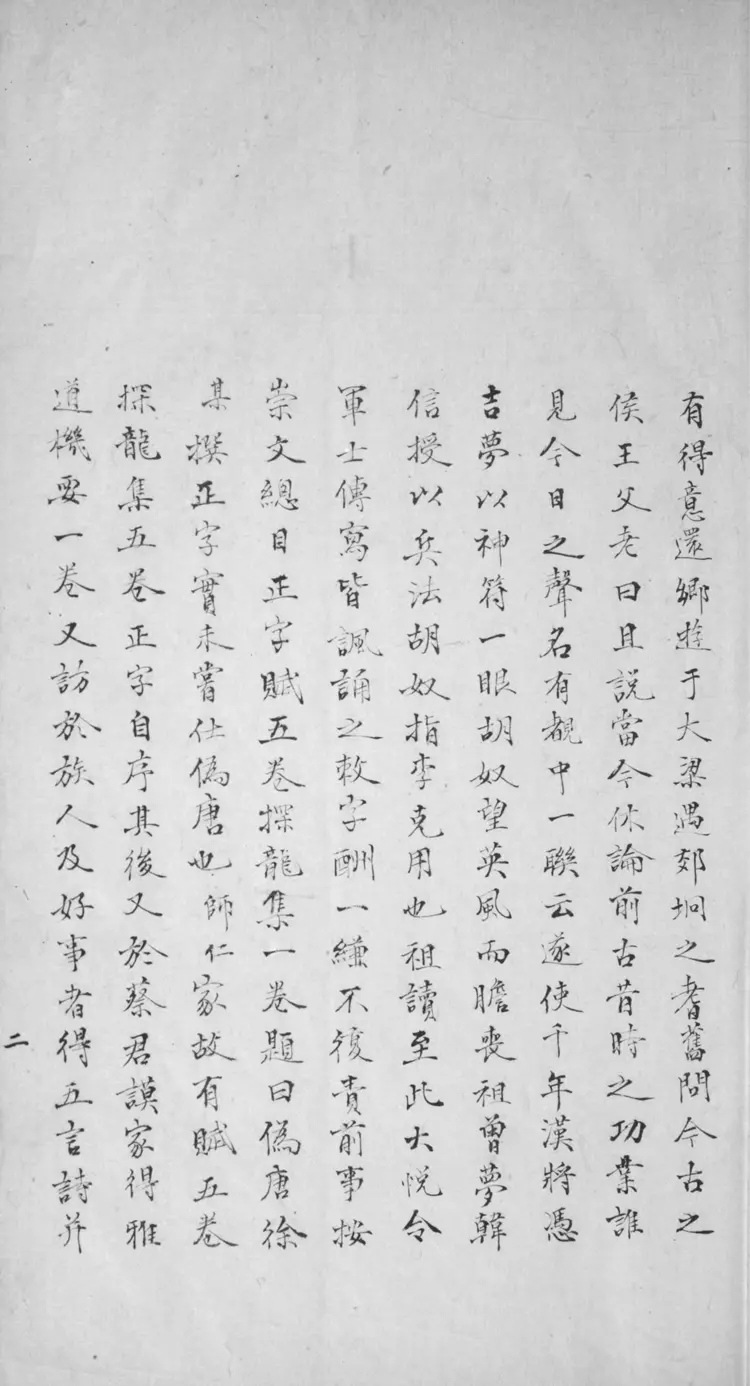 有得意還鄉遊于大梁遇郊坰之耆舊問今古之
侯王父老曰且說當今休論前古昔時之功業誰
見今日之聲名有覩中一聯云遂使千年漢將憑
吉夢以神符一眼胡奴望英風而膽喪祖曾夢韓
信授以兵法胡奴指李克用也祖讀至此大悅令
軍士傳寫皆諷誦之敕字酬一縑不復責前事按
崇文總目正字賦五卷探龍集一卷題曰偽唐徐
某撰正字實未嘗仕偽唐也師仁家故有賦五卷
探龍集五卷正字自序其後又於蔡君謨家得雅
道機要一卷又訪於族人及好事者得五言詩并
二